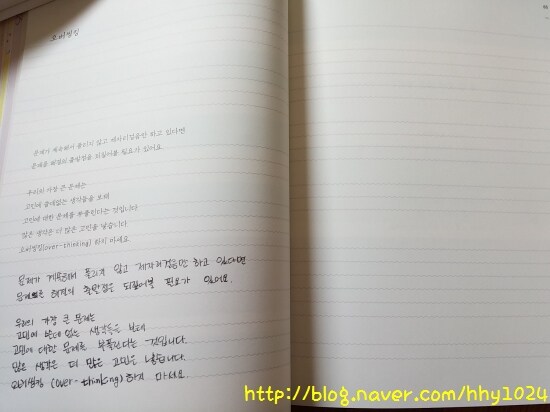 오버씽킹
문제가 계속해서 풀리지 않고 제자리걸음만 하고 있다면
문제를 해결의 출발점을 되짚어볼 필요가 있어요.
우리의 가장 큰 문제는
고민에 쓸데없는 생각들을 보태
고민에 대한 문제를 부풀린다는 것입니다.
많은 생각은 더 많은 고민을 낳습니다.
오버씽킹(over-thinking) 하지 마세요.
문제가 계속해서 풀리지 않고 제자리걸음만 하고 있다면
문제를 해결의 출발점을 되짚어볼 필요가 있어요.
우리의 가장 큰 문제는
고민에 쓸데없는 생각들을 보태
고민에 대한 문제를 부풀린다는 것입니다.
많은 생각은 더 많은 고민을 낳습니다.
오버씽킹 (over-thinking) 하지 마세요.
http://blog.naver.com/hhy1024